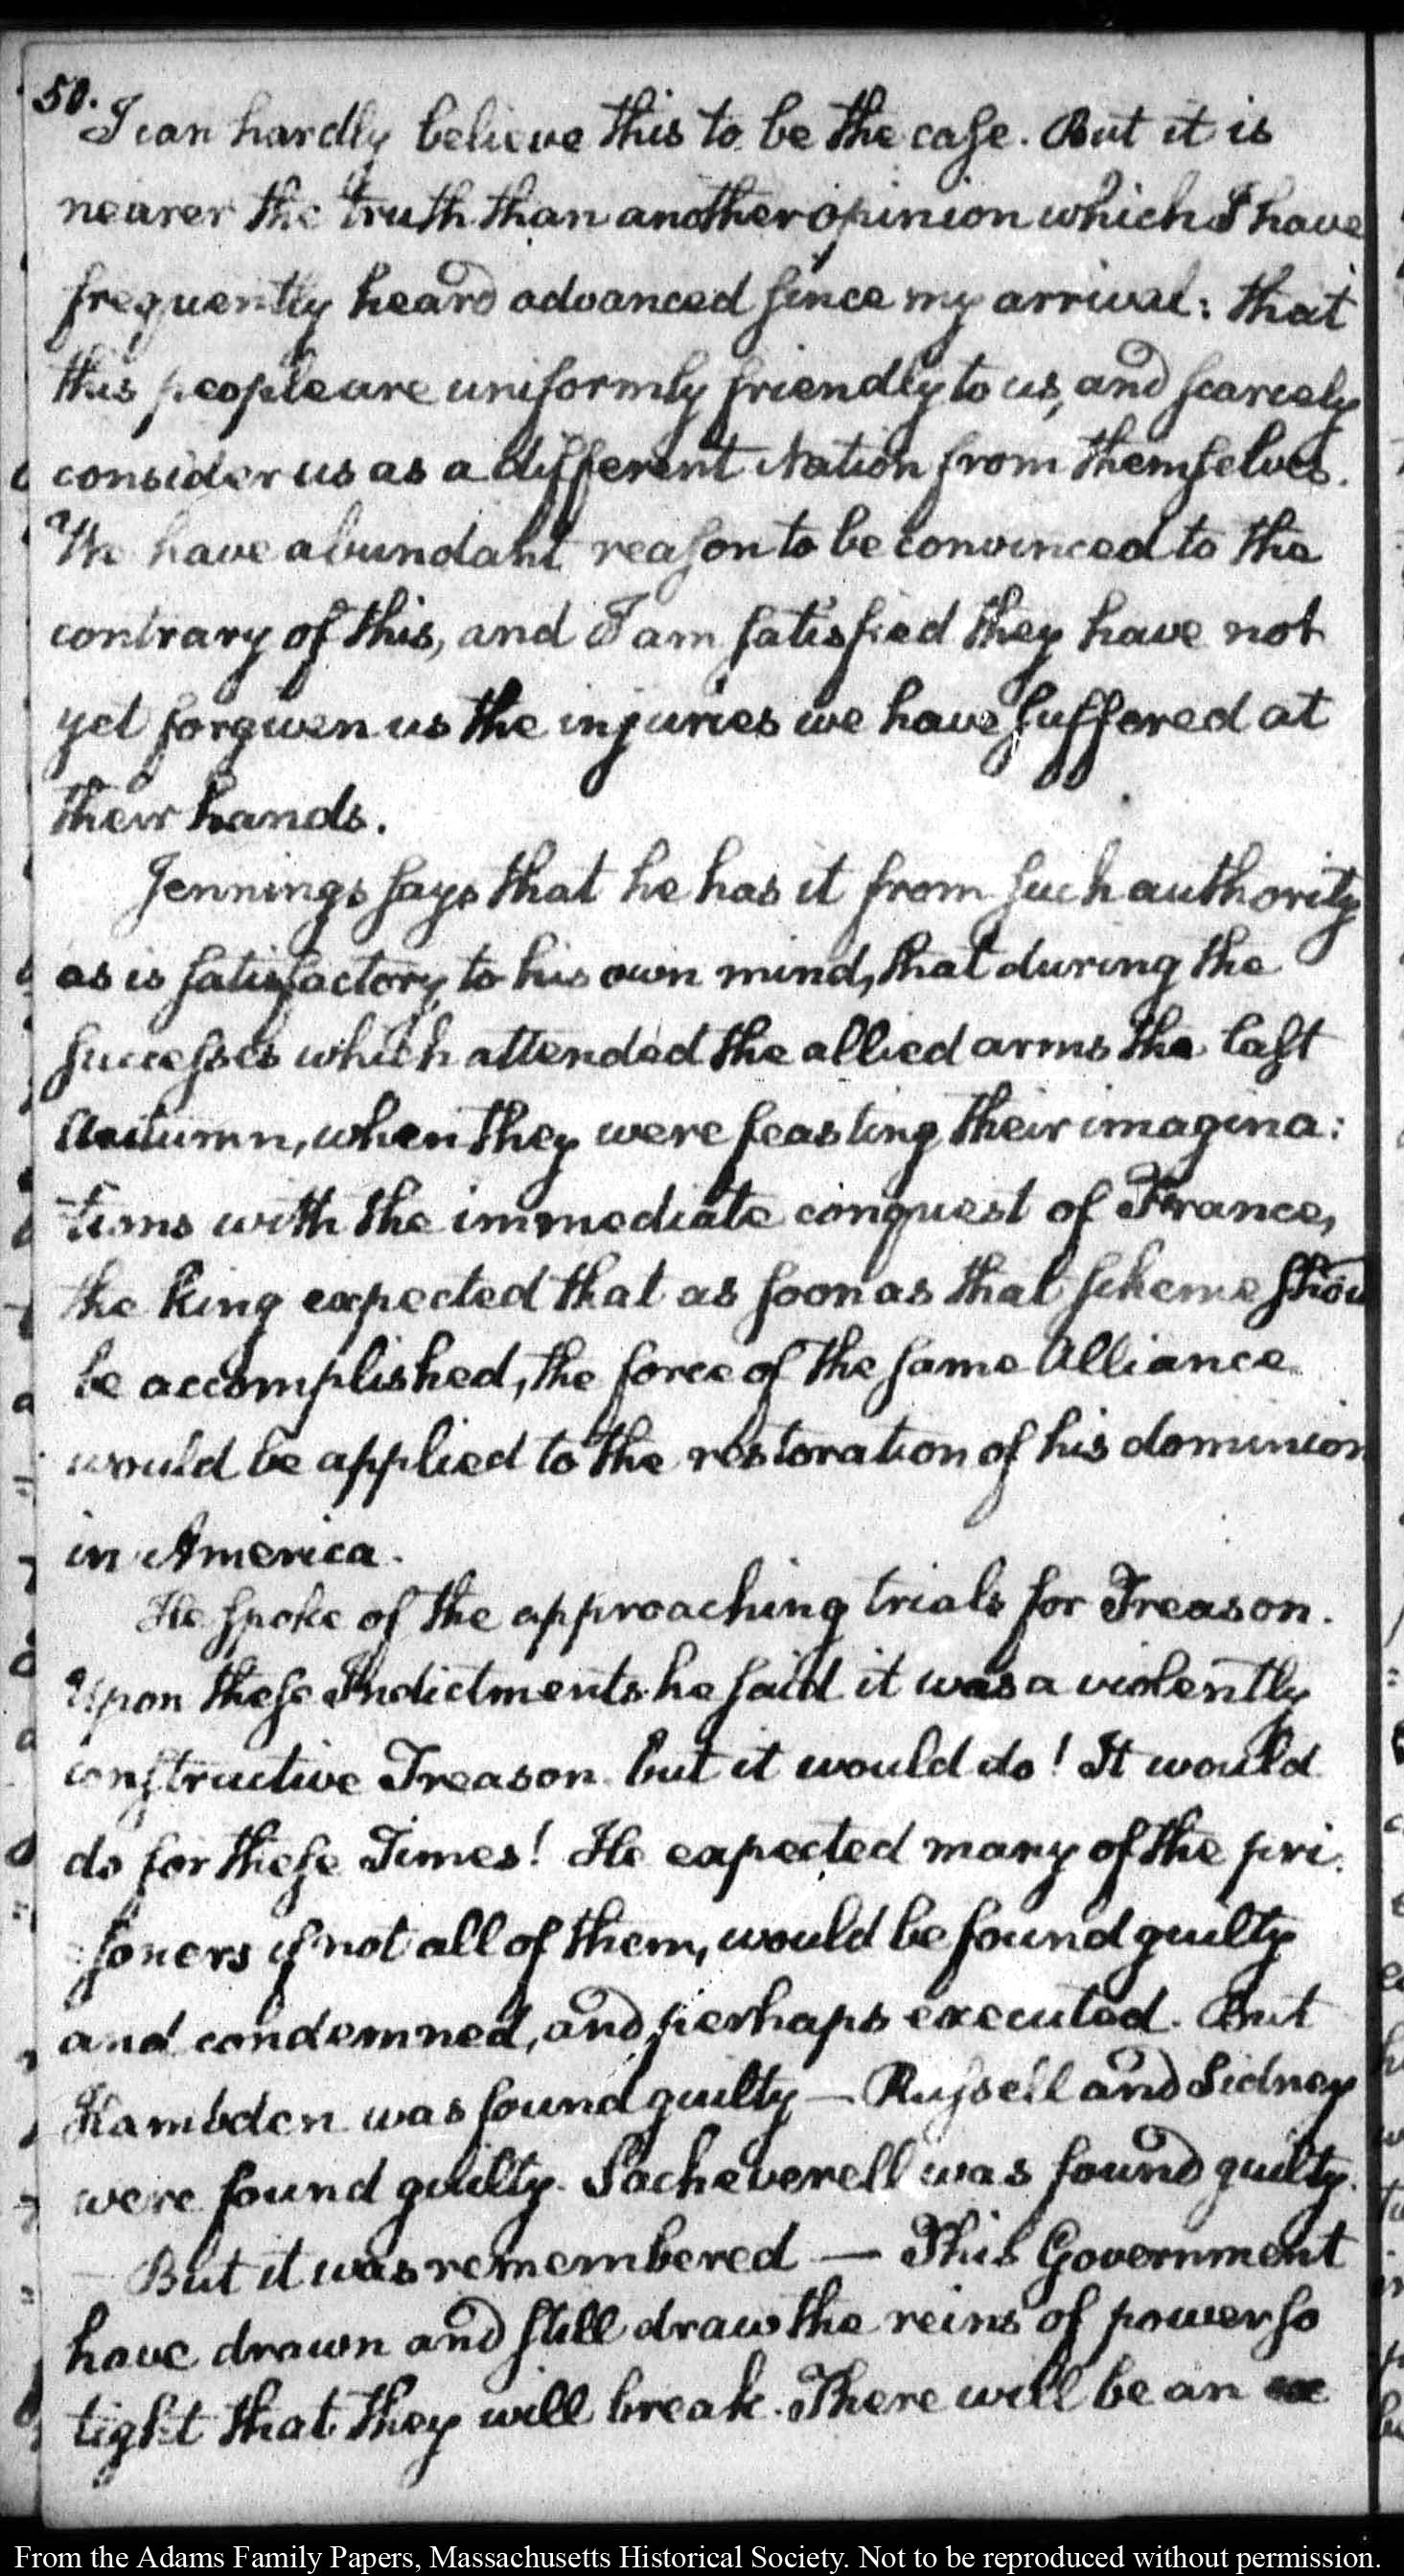 50.
I can hardly believe this to be the case. But it is
nearer the truth than another opinion which I have
frequently heard advanced since my arrival: that
this people are uniformly friendly to us, and scarcely
consider us as a different Nation from themselves.
We have abundant reason to be convinced to the
contrary of this, and I am satisfied they have not
yet forgiven us the injuries we have suffered at
their hands.
Jennings says that he has it from such authority
as is satisfactory to his own mind, that during the
successes which attended the allied arms the last
Autumn, when they were feasting their imagina:
tions with the immediate conquest of France,
the King expected that as soon as that scheme shou
be accomplished, the force of the same Alliance
would be applied to the restoration of his dominion
in America.
He spoke of the approaching trials for Treason.
Upon these Indictments he said it was a violently
constructive Treason but it would do! It would
do for these Times! He expected many of the pri:
soners if not all of them, would be found guilty
and condemned, and perhaps executed. But
Hambden was found guilty — Russell and Sidney
were found guilty. Sacheverell was found guilty.
— But it was remembered — This Government
have drawn and still draw the reins of power so
tight that they will break. There will be an
From the Adams Family Papers, Massachusetts Historical Society. Not to be reproduced without permission.